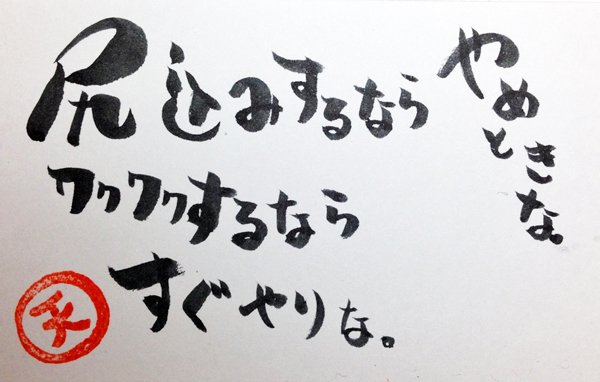 尻込みするなら
やめときな。
ワクワクするなら
すぐやりな。